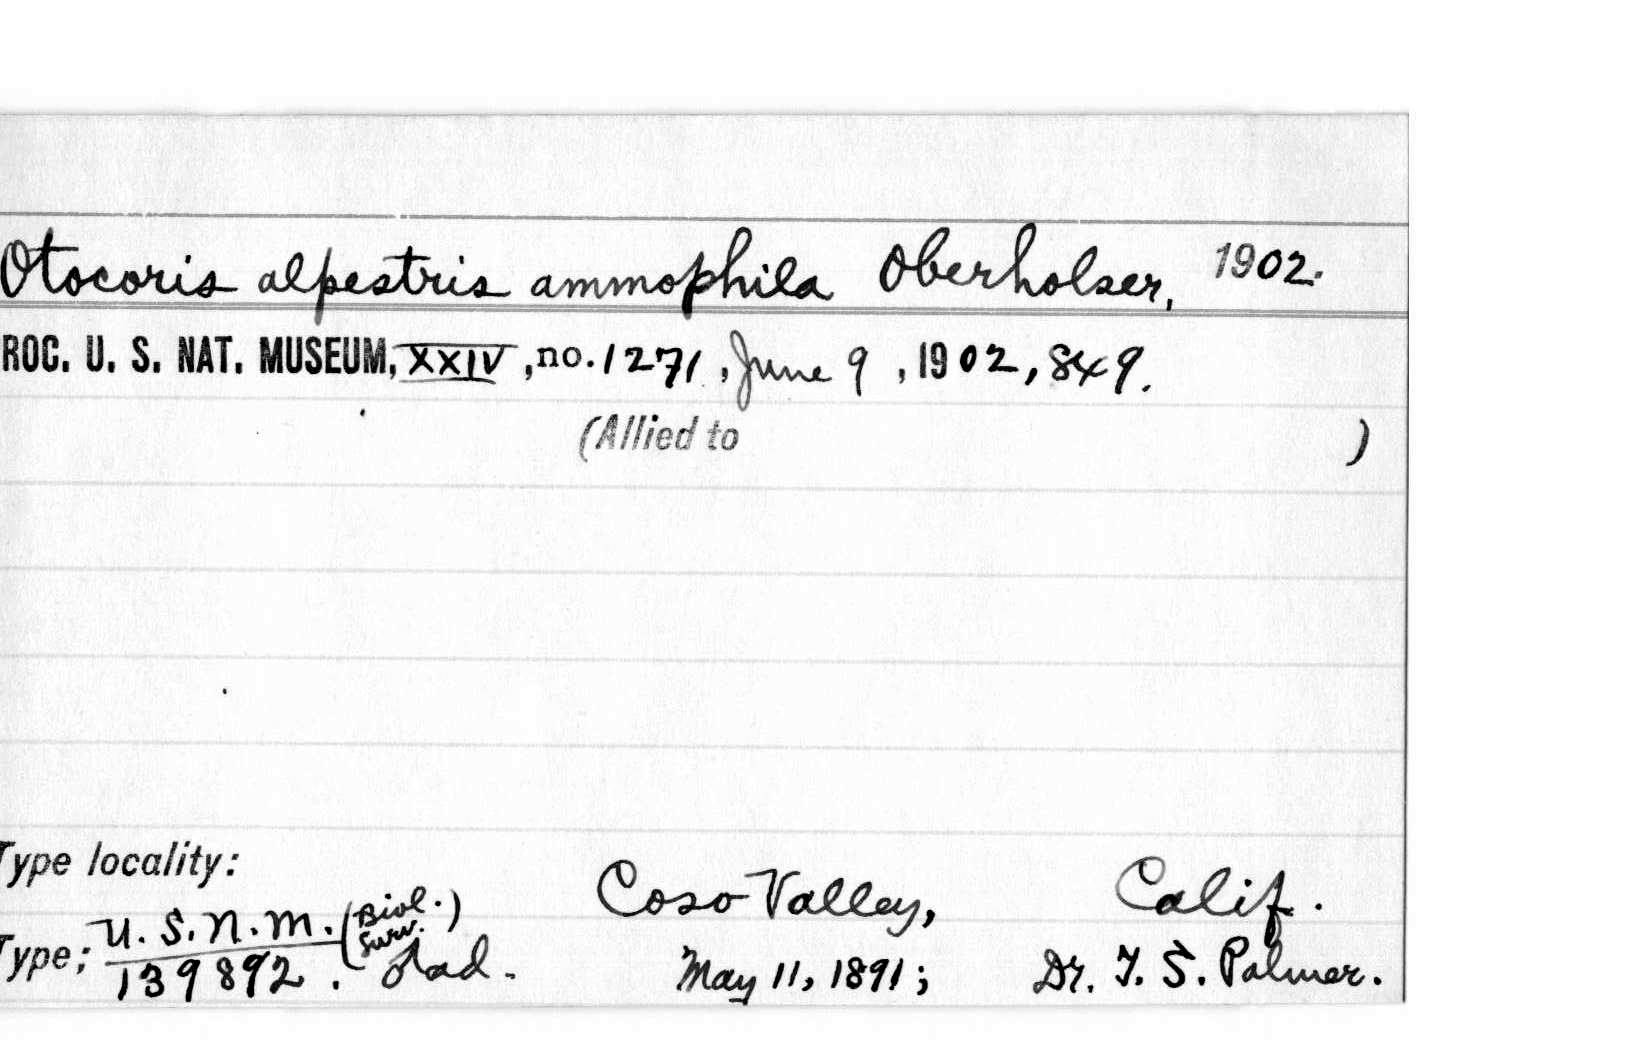 Otocoris alpestris ammophila Oberholser, 1902.
ROC. U. S. NAT. MUSEUM, XXIV, no. 1271, June 9, 1902, 849.
(Allied to )
Type locality:
Coso Valley, Calif.
Type; U.S.N.M. (Biol. Surv.)
139892. ad. May 11, 1891; Dr. T. S. Palmer.